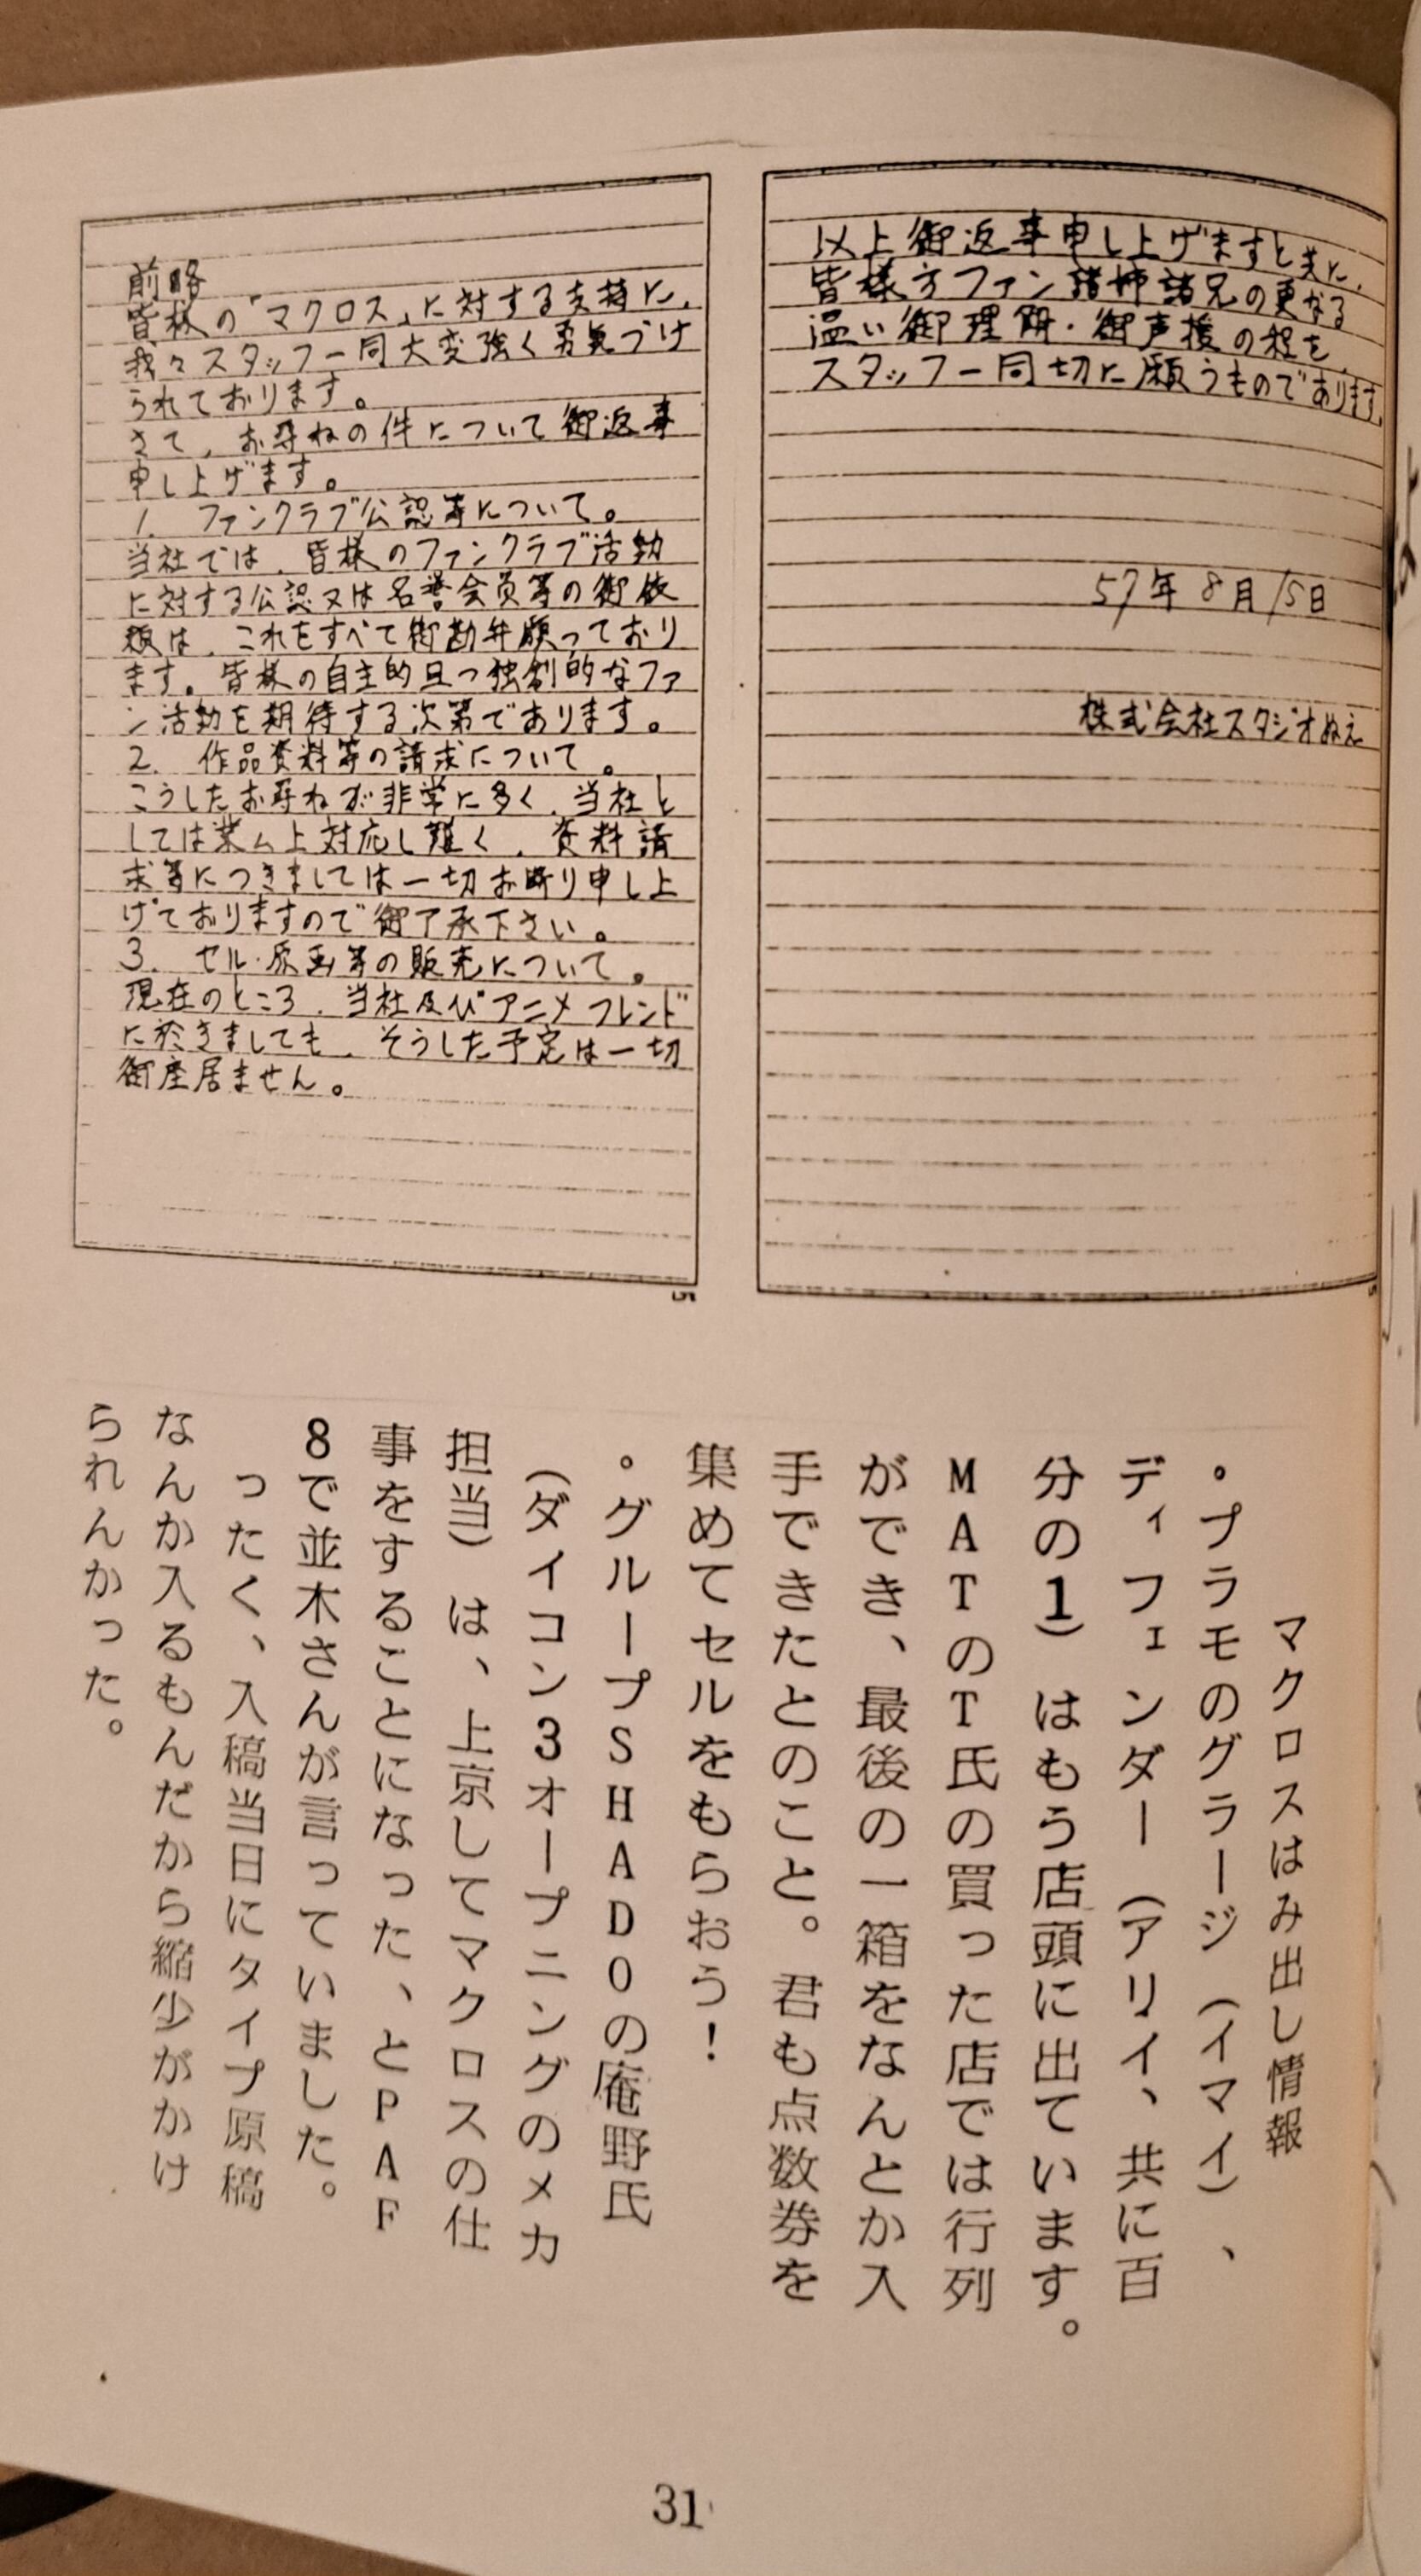 前略
皆様の「マクロス」に対する支持に、
我々スタッフ一同大変強く勇気づけ
られております。
さて、お尋ねの件について御返事
申し上げます。
1. ファンクラブ公認等について。
当社では、皆様のファンクラブ活動
に対する公認又は名誉会員等の御依
頼は、これをすべて御勘弁願っており
ます。皆様の自主的且つ独創的なファ
ン活動を期待する次第であります。
2. 作品資料等の請求について。
こうしたお尋ねが非常に多く、当社と
しては業ム上対応し難く、資料請
求等につきましては一切お断り申し上
げておりますので御了承下さい。
3. セル・原画等の販売について。
現在のところ、当社及びアニメフレンド
に於きましても、そうした予定は一切
御座居ません。
以上御返事申し上げますと共に、
皆様方ファン諸姉諸兄の更なる
温い御理解・御声援の程を、
スタッフ一同切に願うものであります。
57年8月15日
株式会社スタジオぬえ
マクロスはみ出し情報
・プラモのグラージ(イマイ)、
ディフェンダー(アリイ、共に百
分の1)はもう店頭に出ています。
MATのT氏の買った店では行列
ができ、最後の一箱をなんとか入
手できたとのこと。君も点数券を
集めてセルをもらおう!
・グループSHADOの庵野氏
(ダイコン3オープニングのメカ
担当)は、上京してマクロスの仕
事をすることになった、とPAF
8で並木さんが言っていました。
ったく、入稿当日にタイプ原稿
なんか入るもんだから縮少がかけ
られんかった。
31